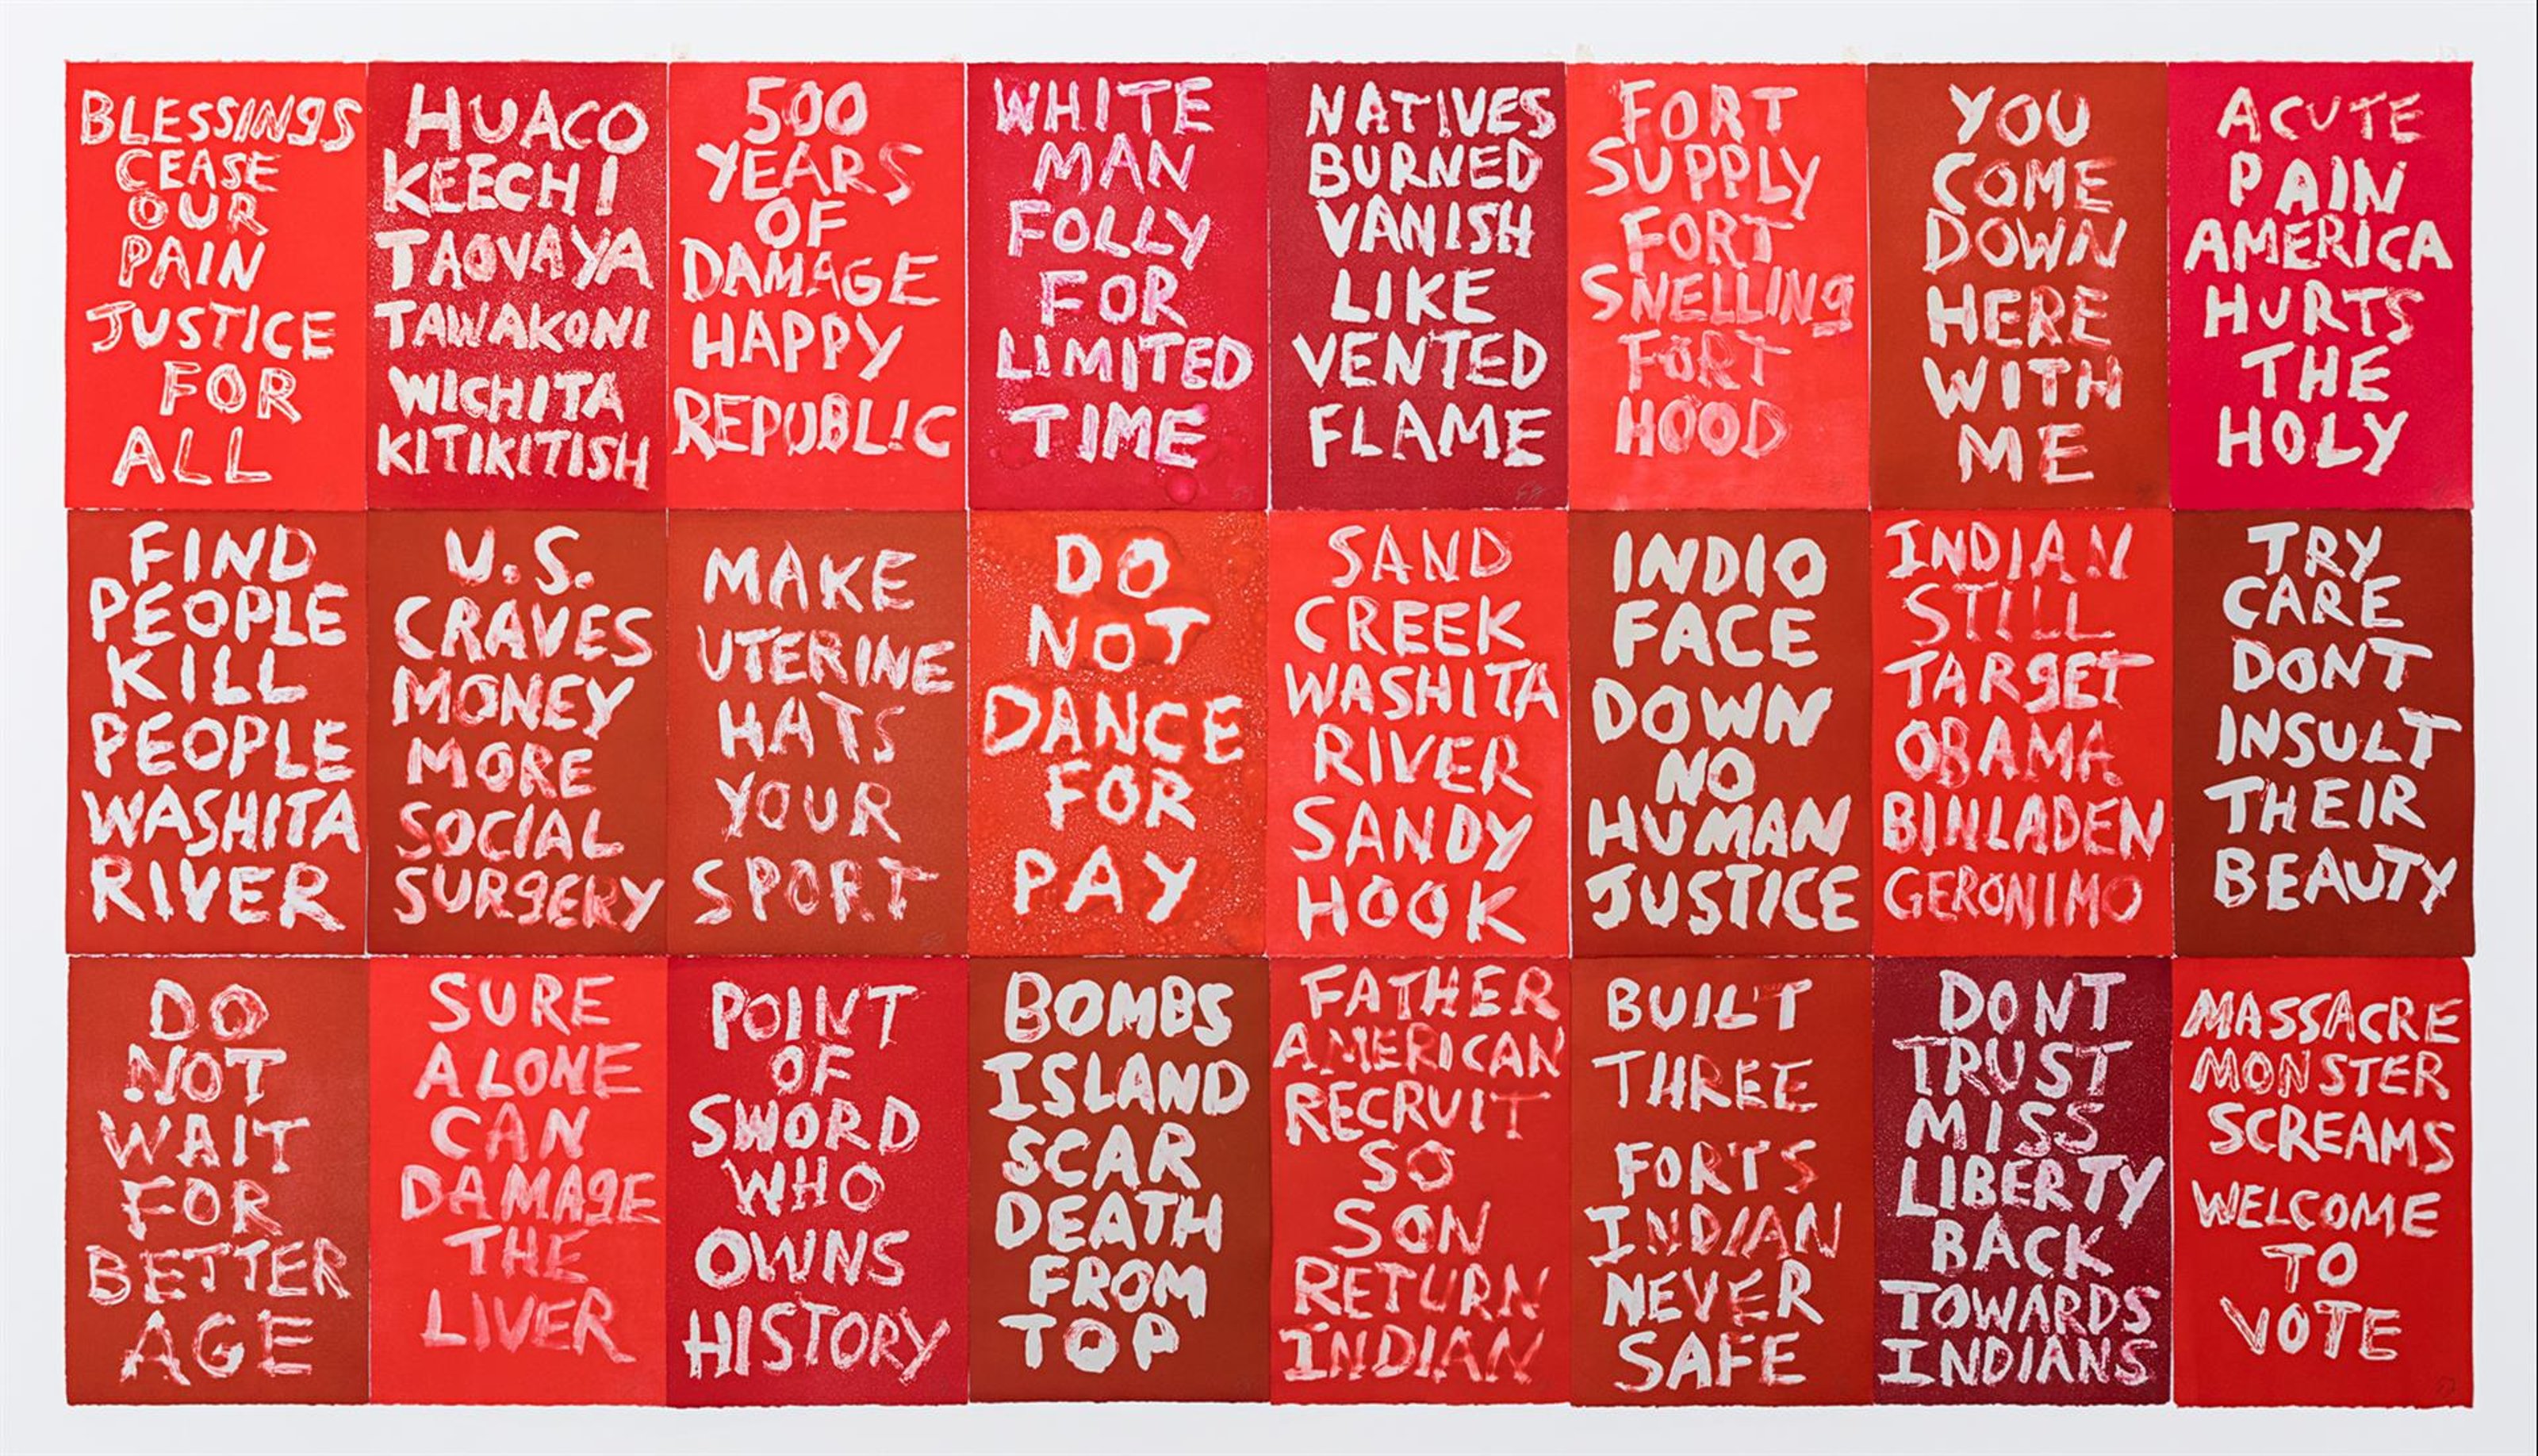 BLESSINGS
CEASE
OUR
PAIN
JUSTICE
FOR
ALL
HUACO
KEECHI
TAOVAYA
TAWAKONI
WICHITA
KITIKITISH
500
YEARS
OF
DAMAGE
HAPPY
REPUBLIC
WHITE
MAN
FOLLY
FOR
LIMITED
TIME
NATIVES
BURNED
VANISH
LIKE
VENTED
FLAME
FORT
SUPPLY
FORT
SNELLING
FORT
HOOD
YOU
COME
DOWN
HERE
WITH
ME
ACUTE
PAIN
AMERICA
HURTS
THE
HOLY
FIND
PEOPLE
KILL
PEOPLE
WASHITA
RIVER
U.S.
CRAVES
MONEY
MORE
SOCIAL
SURGERY
MAKE
UTERINE
HATS
YOUR
SPORT
DO
NOT
DANCE
FOR
PAY
SAND
CREEK
WASHITA
RIVER
SANDY
HOOK
INDIO
FACE
DOWN
NO
HUMAN
JUSTICE
INDIAN
STILL
TARGET
OBAMA
BINLADEN
GERONIMO
TRY
CARE
DONT
INSULT
THEIR
BEAUTY
DO
NOT
WAIT
FOR
BETTER
AGE
SURE
ALONE
CAN
DAMAGE
THE
LIVER
POINT
OF
SWORD
WHO
OWNS
HISTORY
BOMBS
ISLAND
SCAR
DEATH
FROM
TOP
FATHER
AMERICAN
RECRUIT
SO
SON
RETURN
INDIAN
BUILT
THREE
FORTS
INDIAN
NEVER
SAFE
DONT
TRUST
MISS
LIBERTY
BACK
TOWARDS
INDIANS
MASSACRE
MONSTER
SCREAMS
WELCOME
TO
VOTE